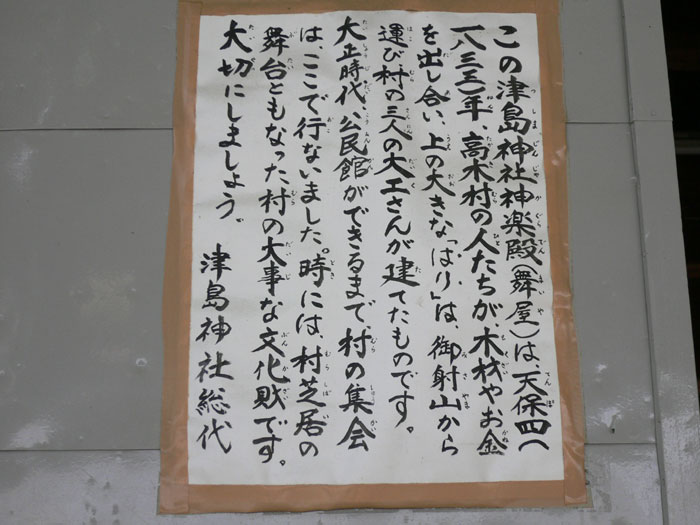 この津島神社神楽殿(舞屋)は、天保四(
一八三三)年、高木村の人たちが、木材やお金
を出し合い、上の大きな「はり」は、御射山から
運び、村の三人の大工さんが建てたものです。
大正時代、公民館ができるまで、村の集会
は、ここで行ないました。時には、村芝居の
舞台ともなった村の大事な文化財です。
大切にしましょう。
津島神社総代